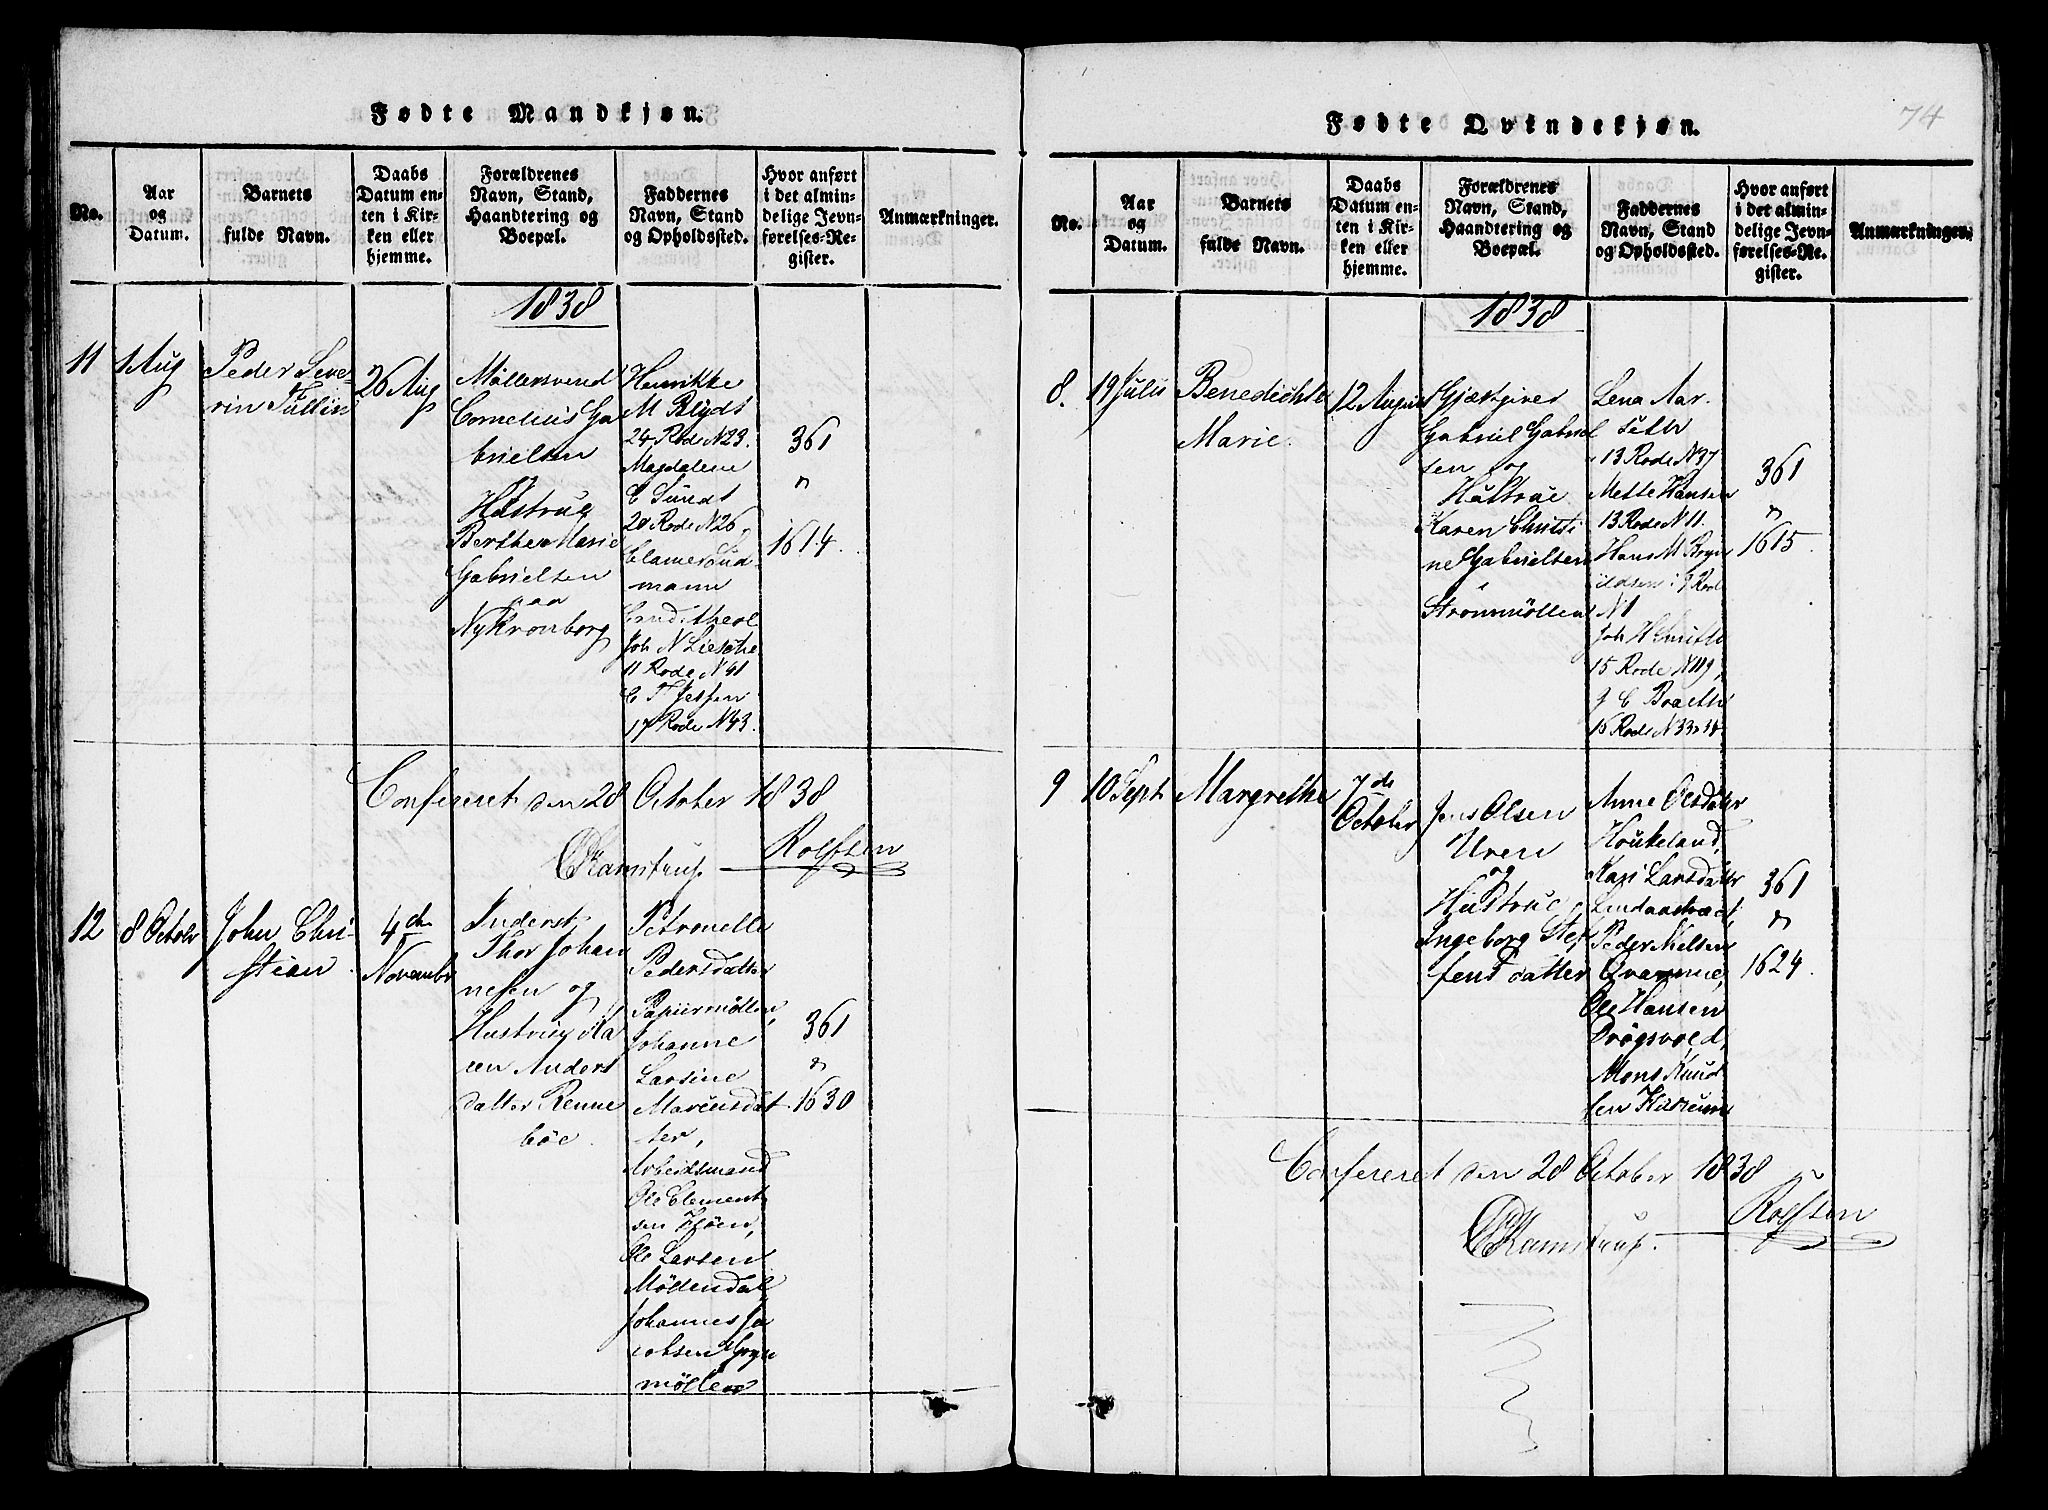 Fødte Mandkjøn.
No.
Aar
og
Datum.
Barnets
fulde Navn.
Daabs
Datum en-
ten i Kir-
ken eller
hjemme.
Forældrenes
Navn, Stand,
Haandtering og
Boepæl.
Faddernes
Navn, Stand
og Opholdssted.
Hvor anført
i det almin-
delige Jevn-
førelses-Re-
gister.
Anmærkninger.
1838
11
1 Aug
Peder Seve-
rin Tullin
26 Aug
Möllersvend
Cornelius Ga
brielsen
og
Hustrue
Berthe Marie
Gabrielsen
paa
Ny Kronborg
Henrikke
M Blydt
24 Rode N 23.
Magdalene
C Sundt
20 Rode N 26
Clamer Sud-
mann
Cand. theol
Joh N Liesche
11 Rode N 41
C T Jessen
17 Rode N 43.
361
n
1614.
Confereret den 28 October 1838
C Ramstrup
Rolfsen
12
8 Octobr
John Chri-
stian
4de
Novembr
Inderst
Thor Johan
nesen og
Hustrue Ka
ren Anders
datter Renne
böe.
Petronelle
Pedersdatter
Papiermöllen,
Johanne
Larsine
Marcusdat
ter,
Arbeidsmand
Ole Clement
sen
Ole Larsen
Möllendal
Johannes Ja
cobsen Gryn
möllen
361
n
1630
Fødte Qvindekjøn.
74
No.
Aar
og
Datum.
Barnets
fulde Navn.
Daabs
Datum en-
ten i Kir-
ken eller
hjemme.
Forældrenes
Navn, Stand,
Haandtering og
Boepæl.
Faddernes
Navn, Stand
og Opholdssted.
Hvor anført
i det almin-
delige Jevn-
førelses-Re-
gister.
Anmærkninger.
1838
8.
19 Julii
Benedichte
Marie.
12 August
Gjæstgiver
Gabriel Gabriel
sen og
Hustrue
Karen Christi
ne Gabrielsen
i
Strømmöllen
Lena Aar-
seth
13 Rode N 37
Mette Hansen
13 Rode N 11.
Hans M Bryn
ildsen i 9 Rode
N 1
Joh H Smith
15 Rode N 119,
J C Braeth
16 Rode N 33
361
n
1615.
9
10 Sept
Margrethe
7de
October
Jens Olsen
Uren
og
Hustrue
Ingeborg Stef
fensdatter
Anne Olsdatter
Houkeland,
Kari Larsdatter
Lindaastræet,
Peder Nielsen
Qvamme,
Ole Hansen
Drögsvold,
Mons Knud
sen
361
n
1624.
Confereret den 28 October 1838
C Ramstrup.
Rolfsen